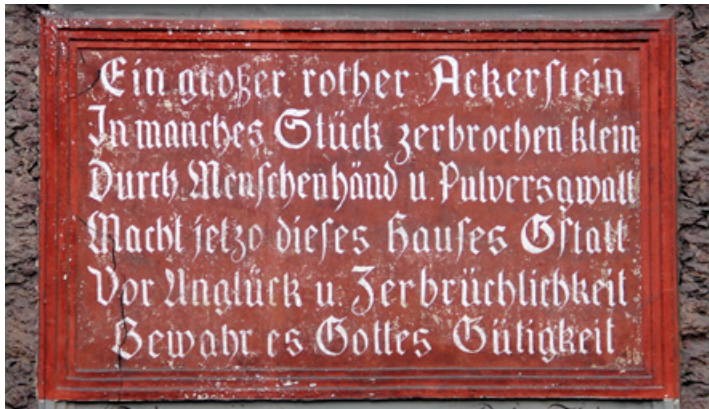 Ein großer rother Ackerstein
In manches Stück zerbrochen klein
Durch Menschenhänd u. Pulversgwalt
Macht jetzo dieses Hauses Gstalt
Vor Unglück u. Zerbrüchlichkeit
Bewahr es Gottes Gütigkeit